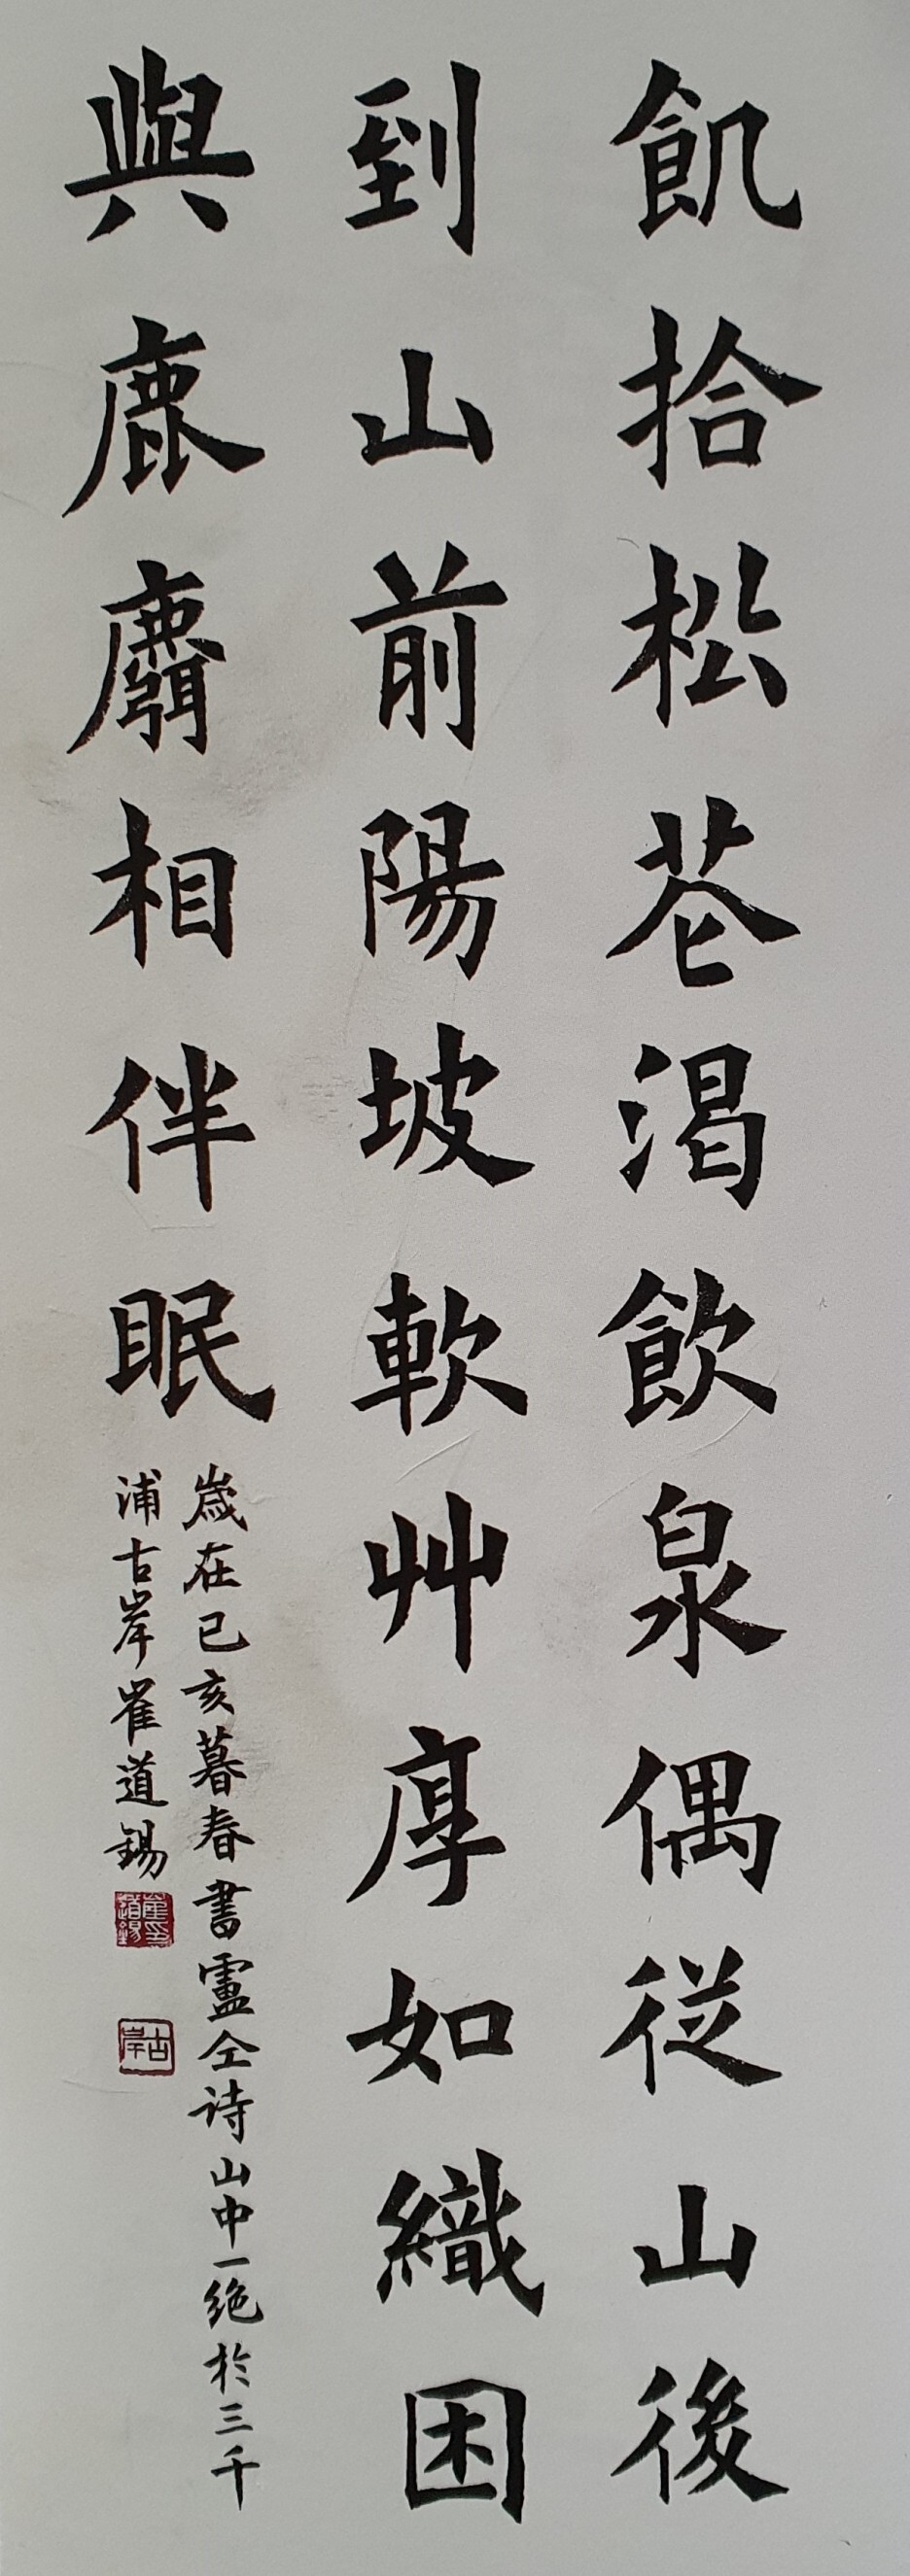 飢拾松花渴飲泉偶從山後
到山前陽坡軟艸厚如織困
與鹿麛相伴眠
歲在己亥暮春書盧仝诗山中一绝於三千
浦古岸崔道锡
崔道錫印
古岸